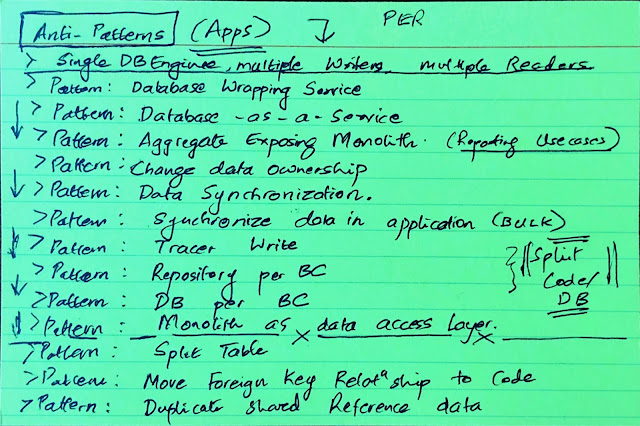 PER
Anti-Patterns (Apps)
> Single DB Engine, multiple Writers, multiple Readers
> Pattern: Database Wrapping Service
> Pattern: Database-as-a-Service
> Pattern: Aggregate Exposing Monolith. (Reporting Usecases)
> Pattern: Change data ownership
> Pattern: Data Synchronization.
> Pattern: Synchronize data in application (BULK)
> Pattern: Tracer Write
> Pattern: Repository per BC
> Pattern: DB per BC
Split
Code/
DB
> Pattern: Monolith as data access layer.
> Pattern: Split Table
> Pattern: Move Foreign Key Relatⁿship to Code
> Pattern: Duplicate Shared Reference data